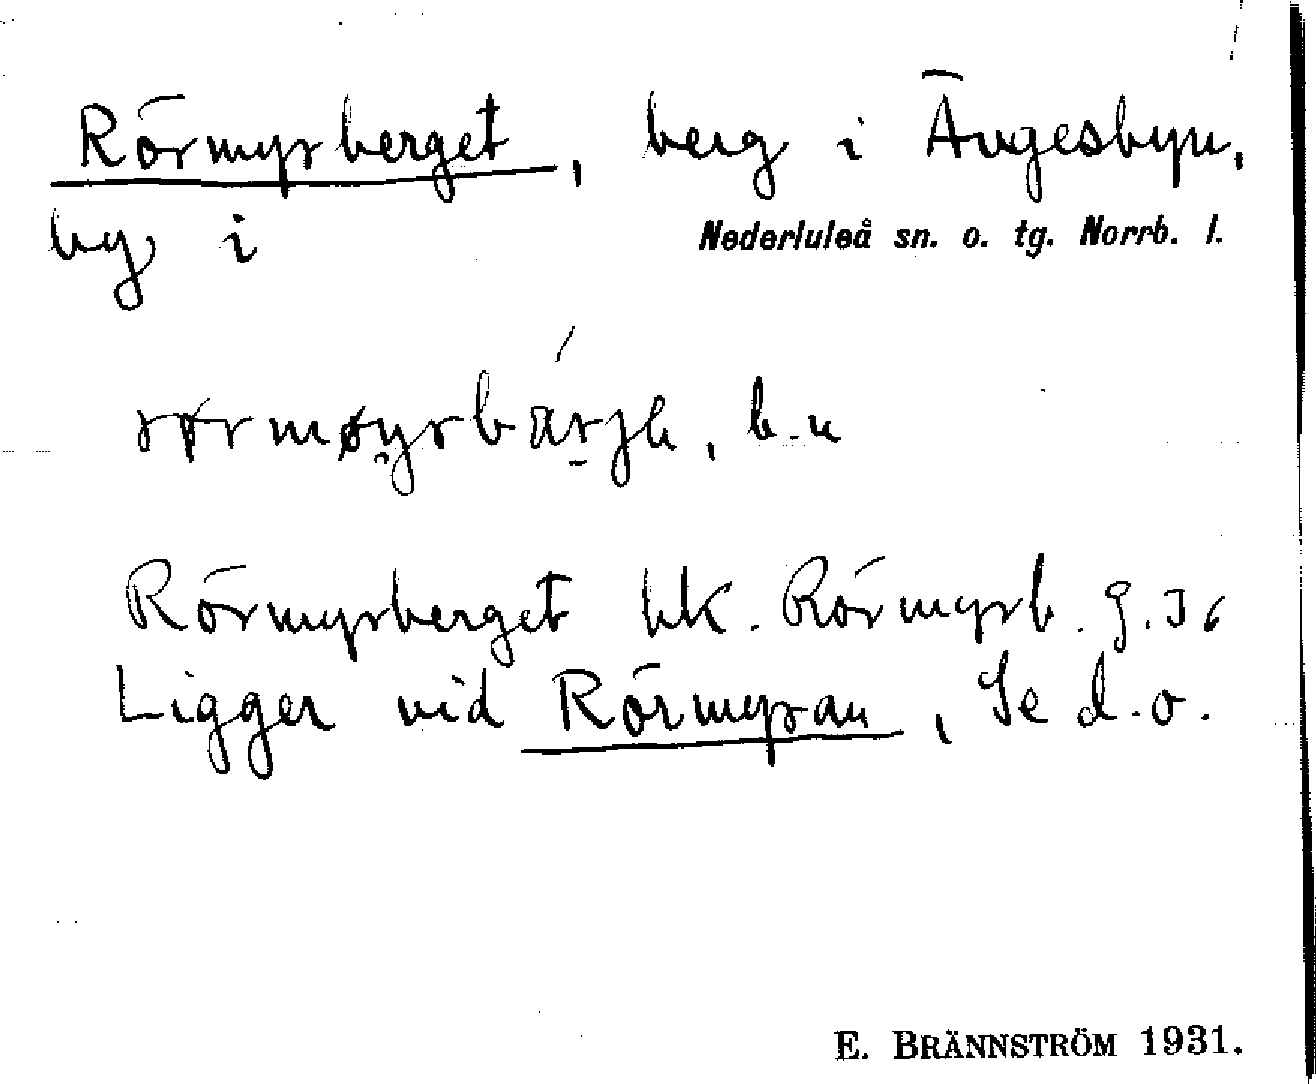 Rörmyrberget, berg i Ängesbyn,
by i Nederluleå sn. o. tg. Norrb. l.
Rörmyrberget hk. Rörmyrb. g. J6
Ligger vid Rörmyran, Se d.o.
E. BRÄNNSTRÖM 1931.